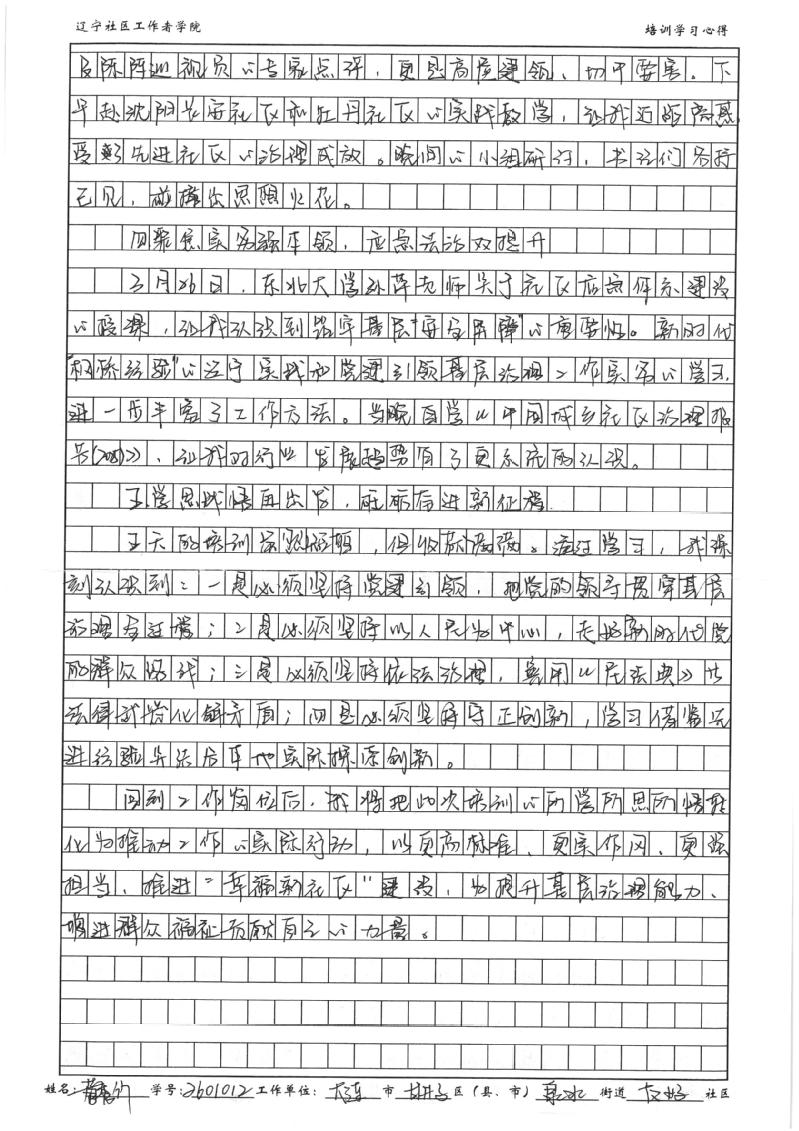 辽宁社区工作者学院 培训学习心得
及陈阵巡视员的专家点评，更是高屋建瓴、切中要害。下
午赴沈阳长安社区和牡丹社区的实践教学，让我近距离感
受到先进社区的治理成效。晚间的小组研讨，书记们各抒
己见，碰撞出思想火花。
四聚焦实务强本领，应急法治双提升
3月26日，东北大学孙萍老师关于社区应急体系建设
的授课，让我认识到筑牢基层"安全屏障"的重要性。新时代
"枫桥经验"的辽宁实践和党建引领基层治理工作实务的学习，
进一步丰富了工作方法。当晚自学《中国城乡社区治理报
告》，让我对行业发展趋势有了更系统的认识。
五.学思践悟再出发，砥砺奋进新征程
五天的培训虽然短暂，但收获满满。通过学习，我深
刻认识到：一是必须坚持党建引领，把党的领导贯穿基层
治理全过程；二是必须坚持以人民为中心，走好新时代党
的群众路线；三是必须坚持依法治理，善用《民法典》等
法律武器化解矛盾；四是必须坚持守正创新，学习借鉴先
进经验并结合本地实际探索创新。
回到工作岗位后，我将把此次培训的所学所思所悟转
化为推动工作的实际行动，以更高标准、更实作风、更强
担当，推进"幸福新社区"建设，为提升基层治理能力、
增进群众福祉贡献自己的力量。
姓名： 学号：3601012 工作单位：大连 市 甘井子 区（县、市） 泉水 街道 社区